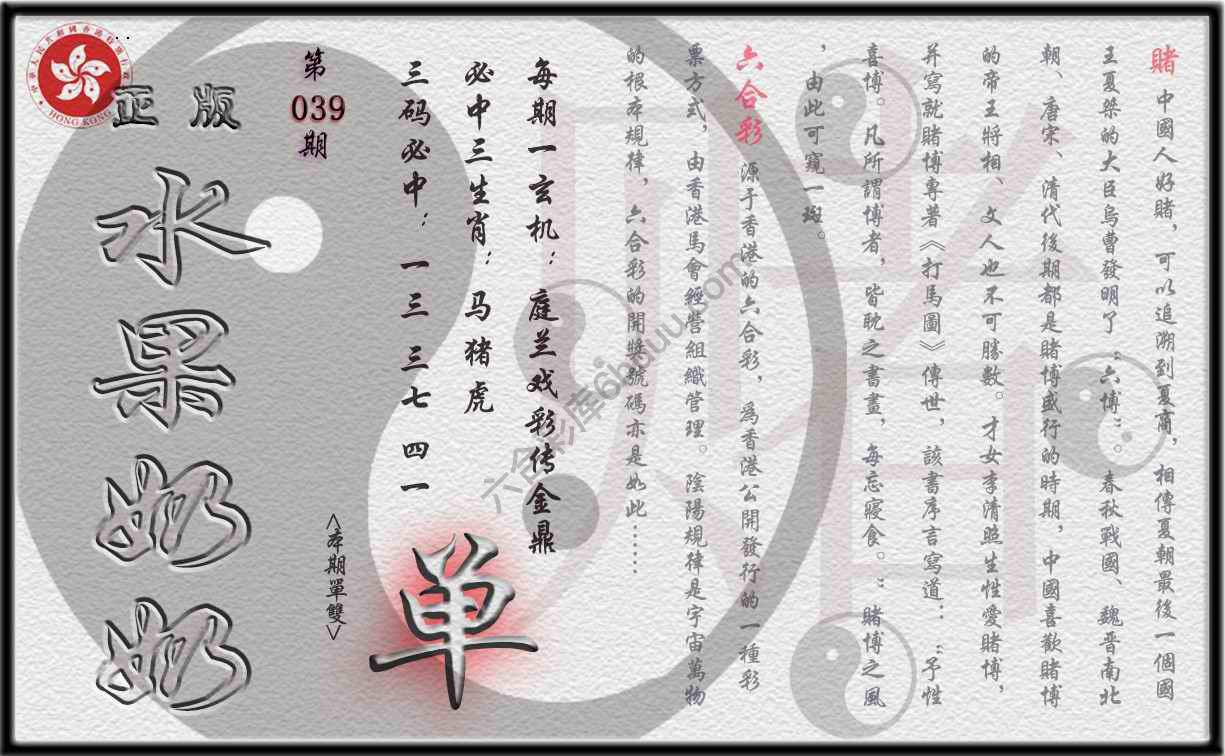 賭 中國人好賭，可以追溯到夏商，相傳夏朝最後一個國
王夏桀的大臣烏曹發明了“六博”。春秋戰國、魏晋南北
朝、唐宋、清代後期都是賭博盛行的時期，中國喜歡賭博
的帝王將相、文人也不可勝數。才女李清照生性愛賭博，
并寫就賭博專著《打馬圖》傳世，該書序言寫道：“予性
喜博。凡所謂博者，皆耽之書畫，每忘寢食。”賭博之風
，由此可窺一斑。
六合彩 源于香港的六合彩，爲香港公開發行的一種彩
票方式，由香港馬會經營組織管理。陰陽規律是宇宙萬物
的根本規律，六合彩的開獎號碼亦是如此……
每期一玄机：庭兰戏彩传金鼎
必中三生肖：马猪虎
三码必中：一三 三七 四一
第
039
期
<本期單雙>
单
正版
水果奶奶
HONG KONG
六合彩库6hduu.com